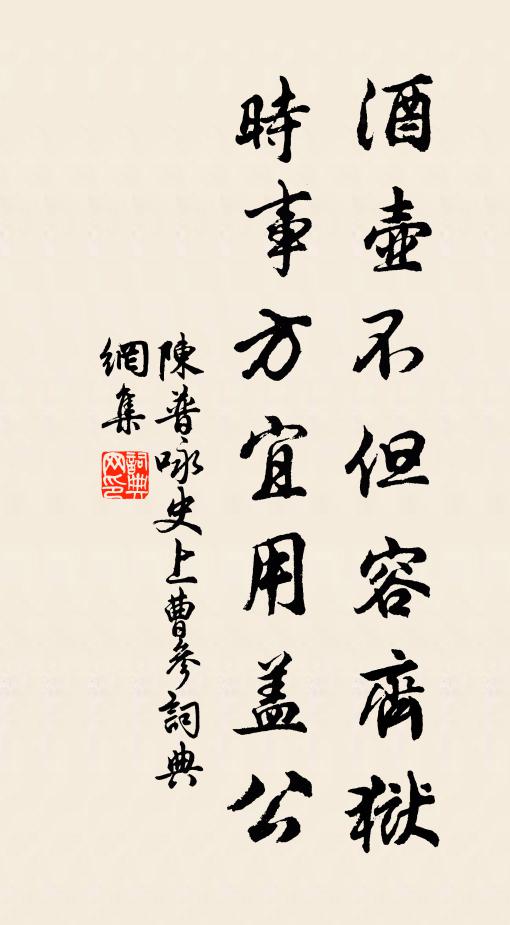 酒壺不但容齊獄
時事方宜用盖公
陳普咏史上曹參詞典
網集
詞典
网印